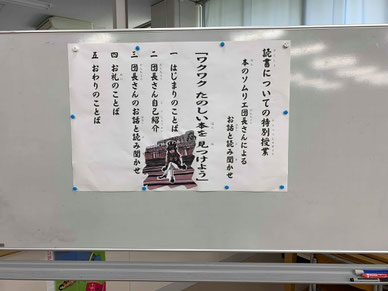 読書についての特別授業
本のソムリエ団長さんによる
お話と読み聞かせ
「ワクワク たのしい本を 見つけよう」
一 はじまりのことば
二 団長さん自己紹介
三 団長さんのお話と読み聞かせ
四 お礼のことば
五 おわりのことば